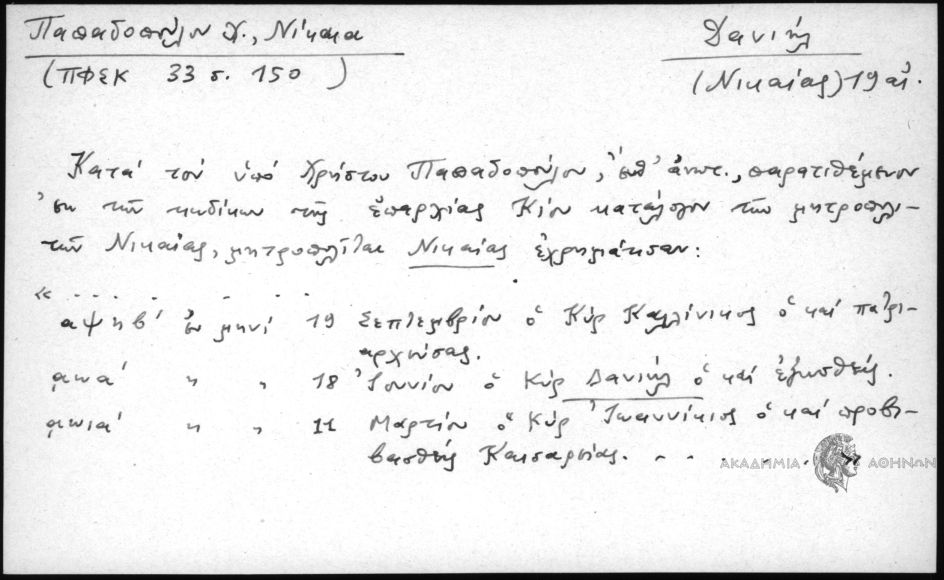 Παπαδοπούλου Χ., Νίκαια
Δανιήλ
(ΠΦΣΚ 33 σ. 150)
(Νικαίας) 19 αἰ.
Κατά τον ὑπό Χρήστου Παπαδοπούλου, ἐνθ' ἀνωτ., παρατιθέμενον
ἐκ τῶν κωδίκων τῆς ἐπαρχίας Κίου κατάλογον τῶν μητροπολι-
τῶν Νικαίας, μητροπολῖται Νικαίας ἐχρημάτισαν:
« . . . . . . . . .
αψϟβ' ἐν μηνί 19 Σεπτεμβρίου ὁ Κύρ Καλλίνικος ὁ καί πατρι-
αρχεύσας.
αωα' " " 18 Ἰουνίου ὁ Κύρ Δανιήλ ὁ καί ἐξωσθείς.
αωια' " " 11 Μαρτίου ὁ Κύρ Ἰωαννίκιος ὁ καί προβι-
βασθείς Καισαρείας. . . . . »
ΑΚΑΔΗΜΙΑ ΑΘΗΝΩΝ